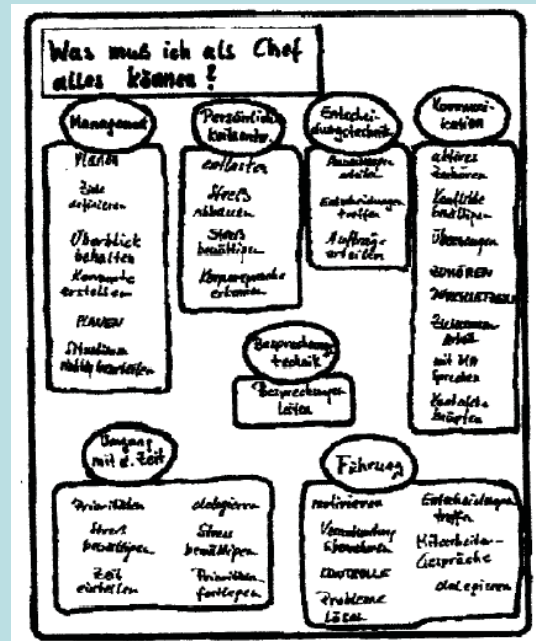 Was muß ich als Chef
alles können?
Management
Planen
Ziele
definieren
Überblick
behalten
Konzepte
erstellen
PLANEN
Situation
bearbeiten
Persönlich-
entlasten
Streß
abbauen
Streß
bewältigen
Körpersprache
erkennen
Entschei-
dungstechnik
Entscheidungen
treffen
Aufträge
erteilen
Kommuni-
kation
aktives
Zuhören
Konflikte
bewältigen
Überzeugen
ZUHÖREN
mit MA
sprechen
Kontakte
knüpfen
Besprechungs-
technik
Besprechungen
leiten
Umgang
mit d. Zeit
Prioritäten
Stress
bewältigen
Zeit
einteilen
delegieren
Stress
bewältigen
Prioritäten
festlegen
Führung
motivieren
Verantwortung
übernehmen
KONTROLLE
Probleme
lösen
Entscheidungen
treffen
Mitarbeiter-
Gespräche
delegieren